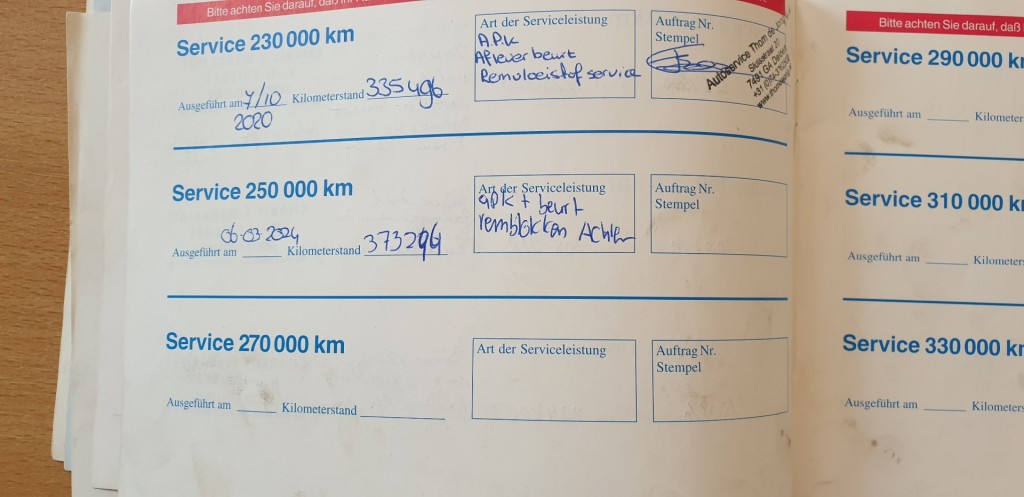 Bitte achten Sie darauf, daß
Service 230 000 km
Ausgeführt am 7/10 Kilometerstand 335496
2020
Art der Serviceleistung
A.P.K
Aflever beurt
Remvloeistof service
Auftrag Nr.
Stempel
Autoservice Thom de
7491 GA Delden
Service 250 000 km
06-03 2024
Ausgeführt am Kilometerstand 373294
Art der Serviceleistung
apk + beurt
remblokken Achter
Auftrag Nr.
Stempel
Service 270 000 km
Ausgeführt am Kilometerstand
Art der Serviceleistung
Auftrag Nr.
Stempel
Bitte achten Sie darauf, daß
Service 290 000 k
Ausgeführt am Kilometer
Service 310 000 k
Ausgeführt am Kilometer
Service 330 000 k
Ausgeführt am Kilometer